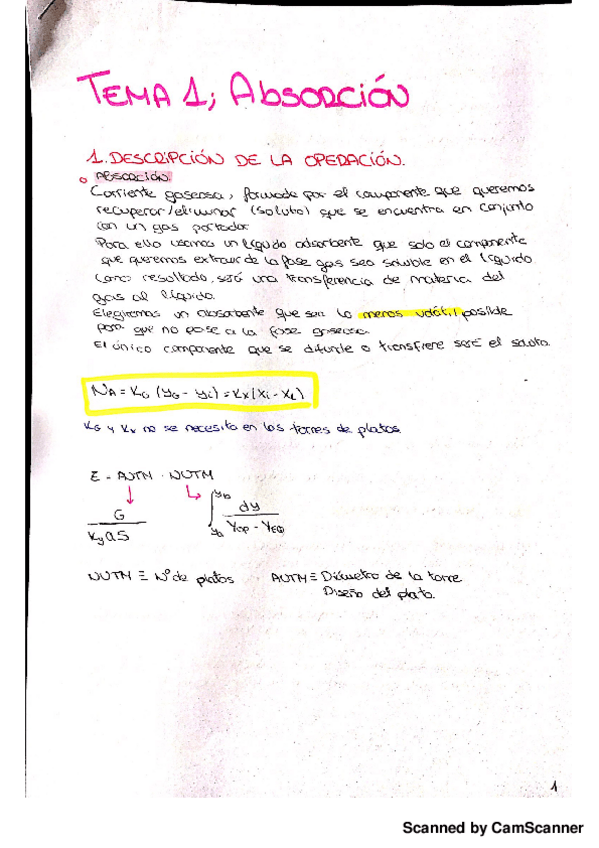 TEMA 1; Absorción
1. DESCRIPCIÓN DE LA OPERACIÓN.
ABSORCIÓN.
Corriente gaseosa, formada por el componente que queremos
recuperar/eliminar (soluto) que se encuentra en conjunto
con un gas portador
Para ello usamos un líquido adsorbente que solo el componente
que queremos extraer de la fase gas sea soluble en el líquido
como resultado, será una transferencia de materia del
gas al líquido.
Elegiremos un absorbente que sea lo menos volátil posible
para que no pase a la fase gaseosa
El único componente que se difunde o transfiere será el soluto.
NA = KG (yG - yi) = Kx (xi - xL)
KG y Kx no se necesita en las torres de platos.
E - AUTM · NUTM
G
Ky a S
yb
dy
ya
yop - yEQ
NUTM ≡ Nº de platos AUTM ≡ Diámetro de la torre
Diseño del plato.
1
Scanned by CamScanner